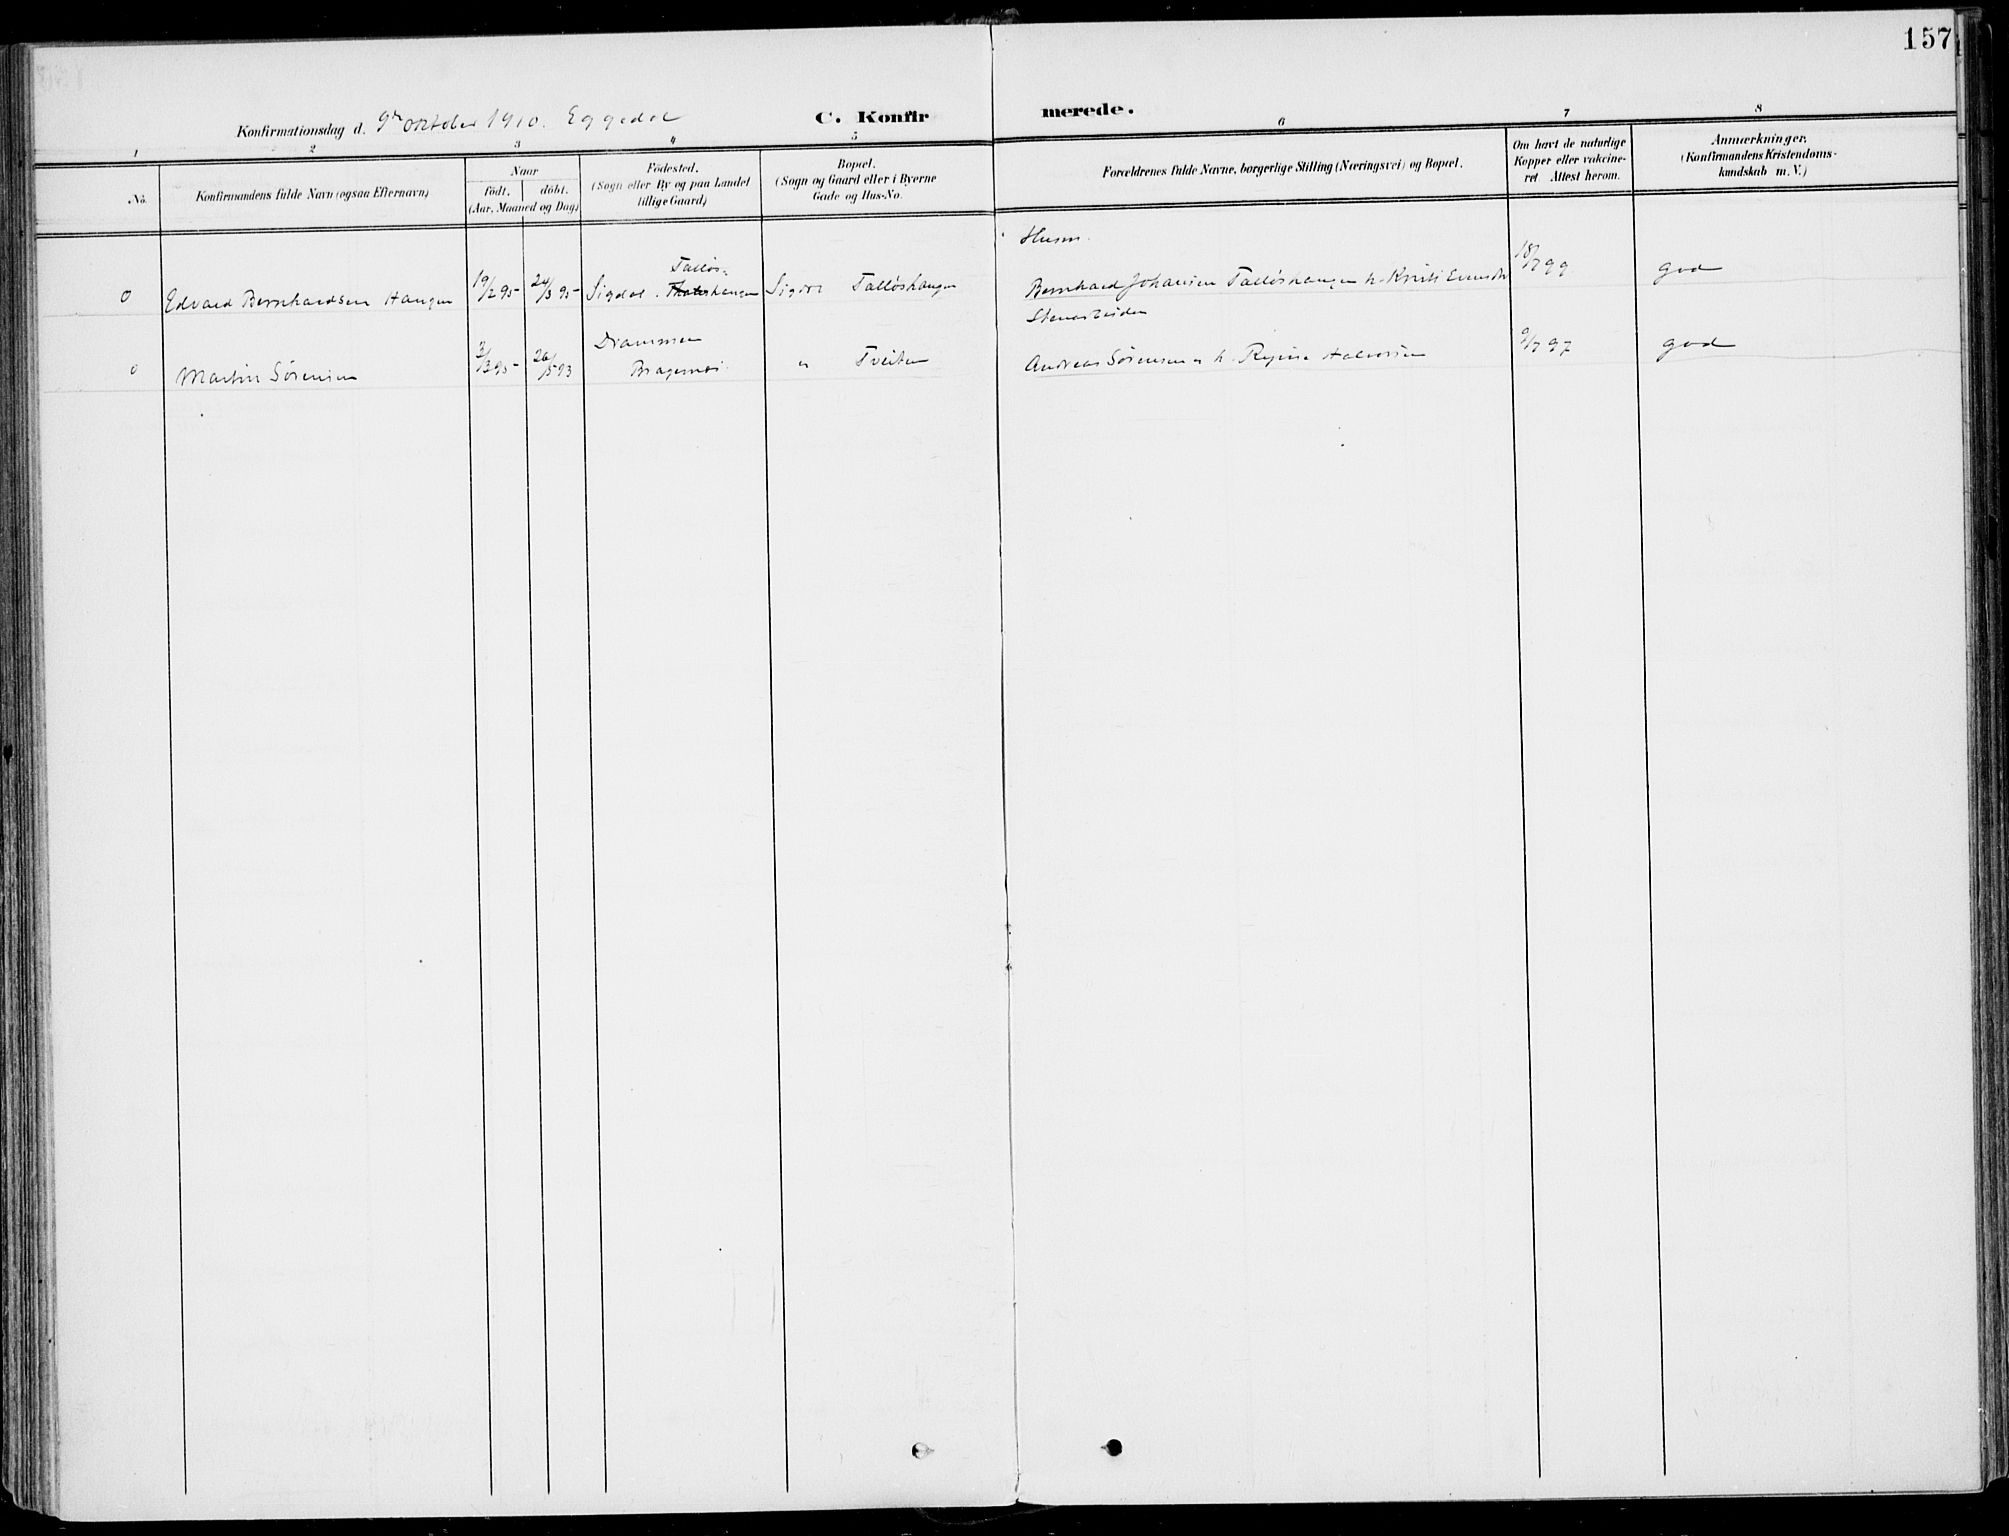 157
Konfirmationsdag d. 9de oktober 1910. Eggedal
C. Konfirmerede.
1 2 3 4 5 6 7 8
No.
Konfirmandens fulde Navn (ogsaa Efternavn)
Naar
født. døbt.
(Aar, Maaned og Dag)
Födested.
(Sogn eller By og paa Landet
tillige Gaard)
Bopæl.
(Sogn og Gaard eller i Byerne
Gade og Hus-No.
Forældrenes fulde Navne, borgerlige Stilling (Næringsvei) og Bopæl.
Om havt de naturlige
Kopper eller vakcine-
ret Attest herom.
Anmærkninger.
(Konfirmandens Kristendoms-
kundskab m. V.)
Husm.
0 Edvard Bernhardsen Haugen 19/2 95 24/3 95 Sigdal. Talløs- haugen Sigdal Talløshaugen Bernhard Johansen Talløshaugen h. Kristi Evensdtr 18/7 99 god
Stenarbeider
0 Martin Sørensen 3/3 95 26/5 93 Drammen Bragernes " Tveiten Andreas Sørensen h. Regine Halvorsen 9/7 97 god